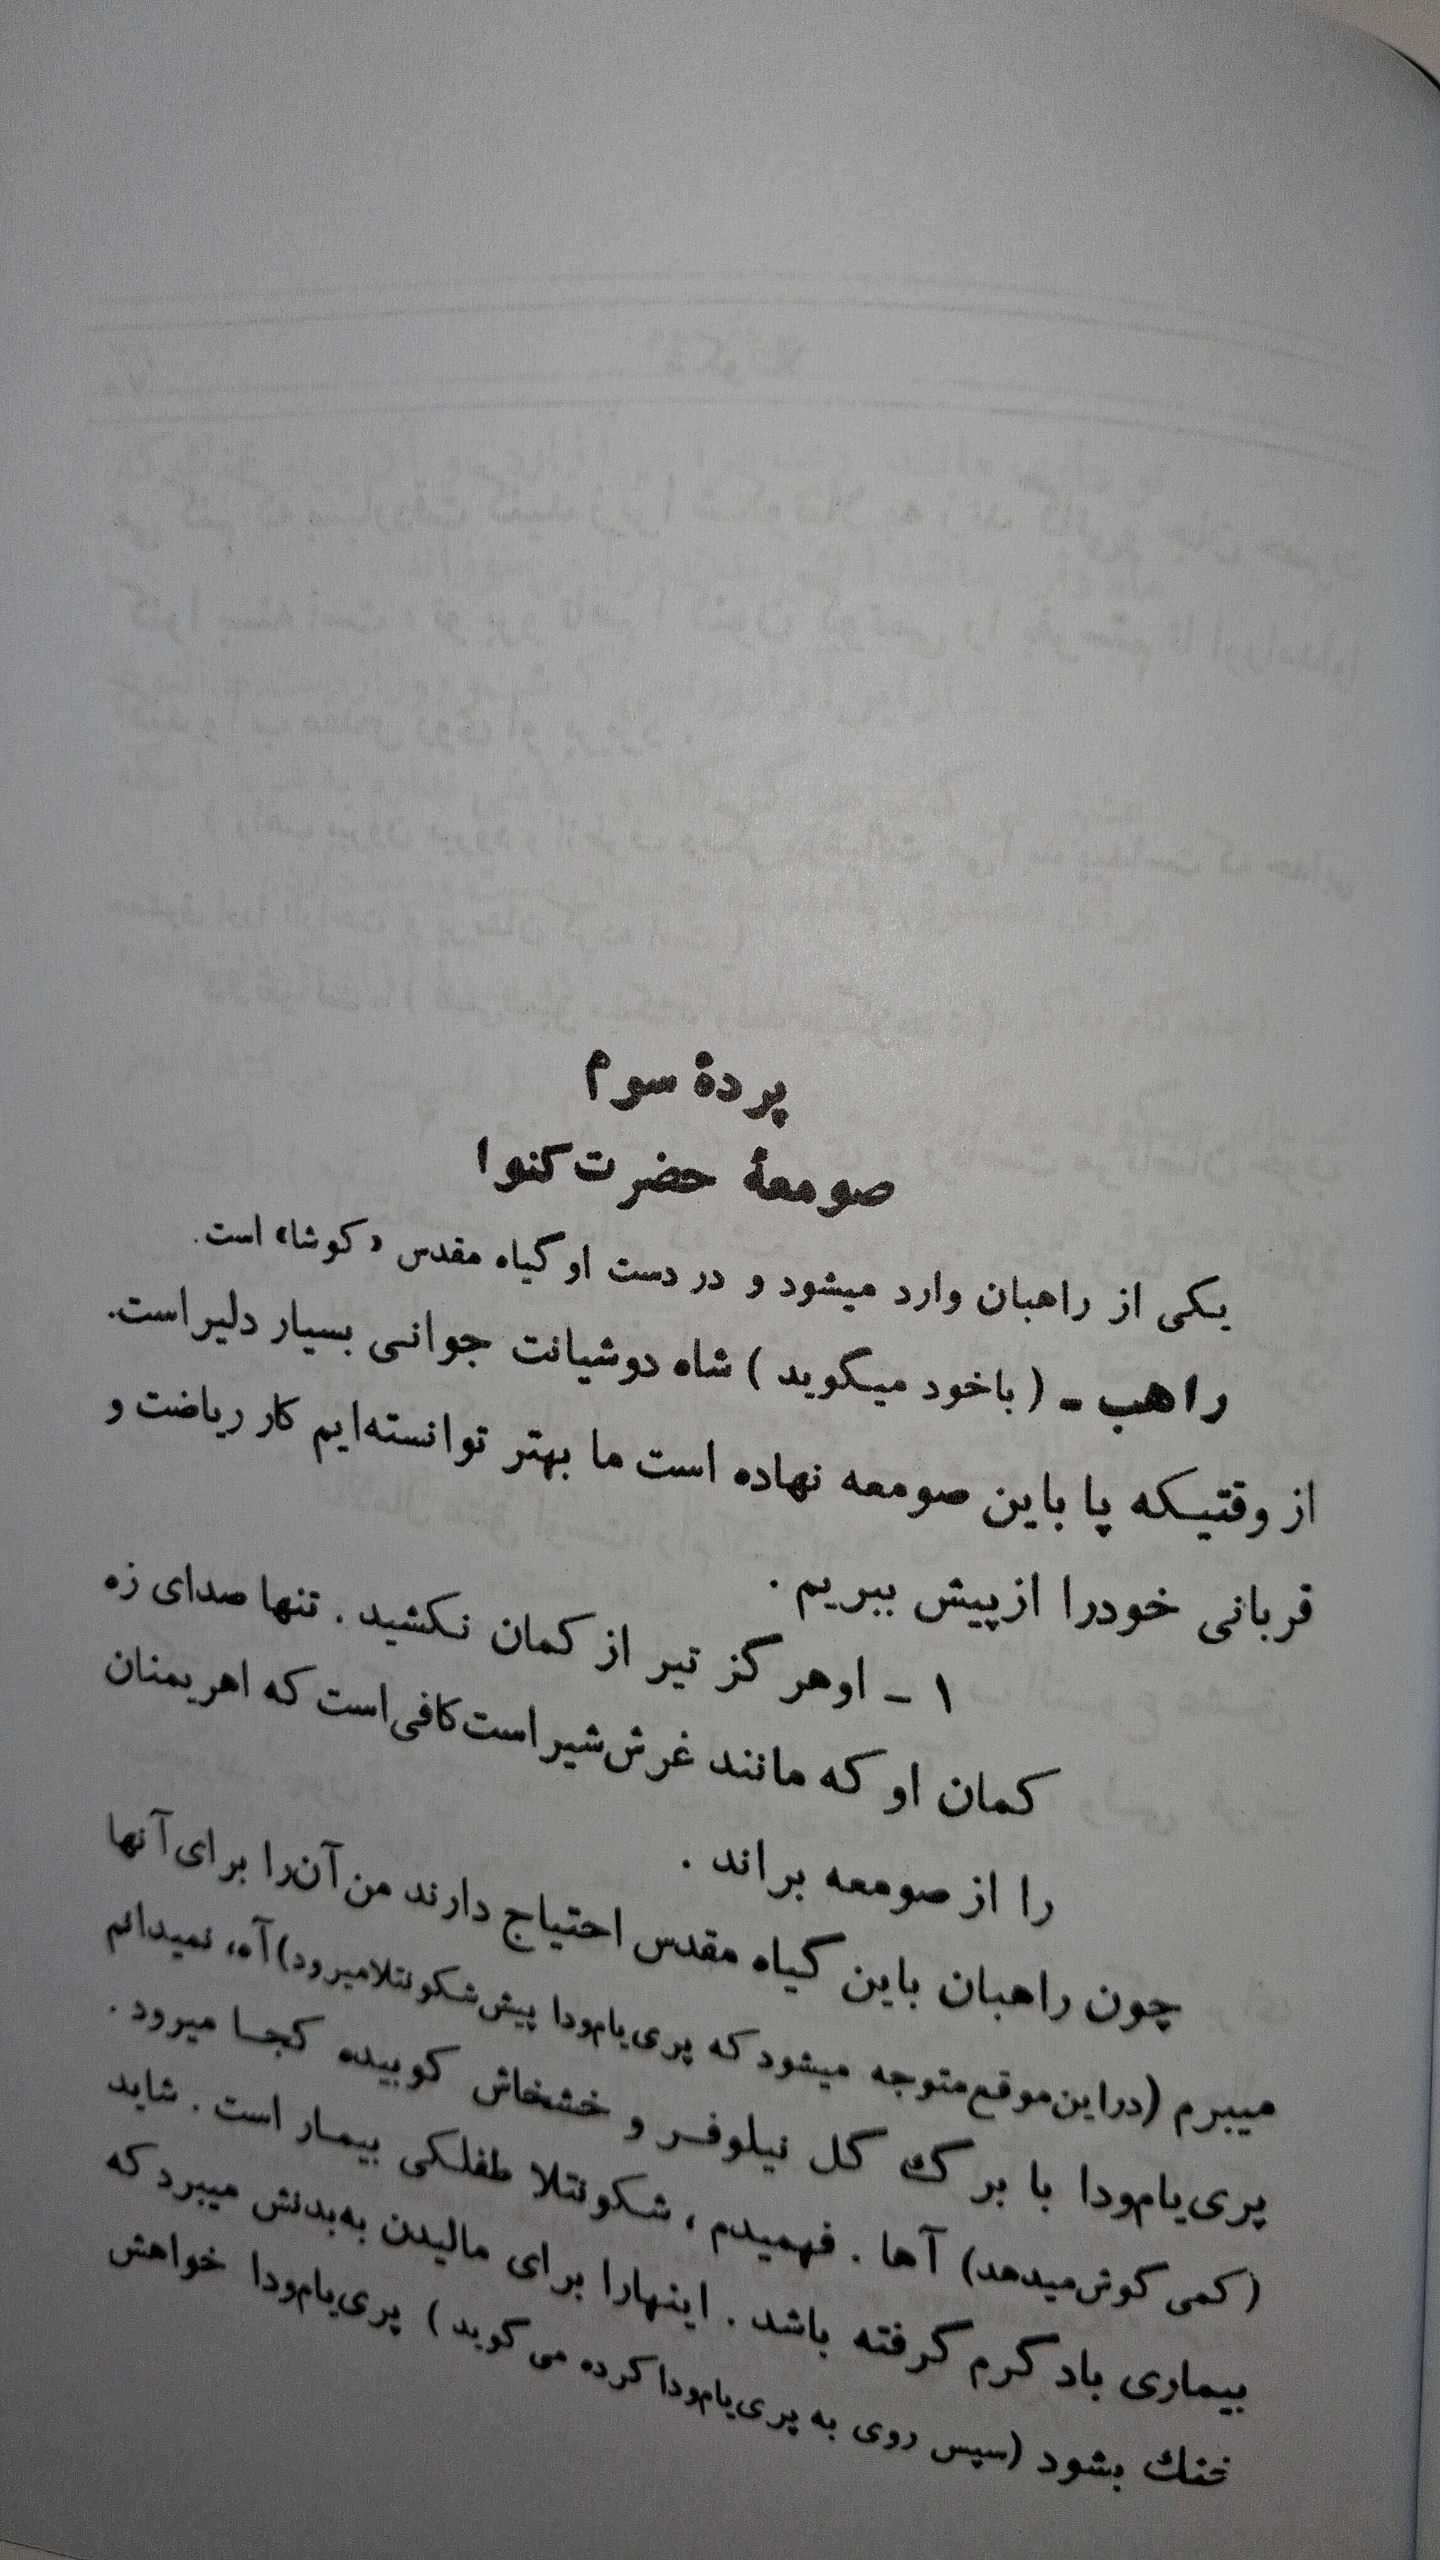 پردهٔ سوم
صومعهٔ حضرت کنوا
یکی از راهبان وارد میشود و در دست او گیاه مقدس «کوشا» است.
راهب ـ (باخود میگوید) شاه دوشیانت جوانی بسیار دلیر است.
از وقتیکه پا باین صومعه نهاده است ما بهتر توانسته‌ایم کار ریاضت و
قربانی خودرا از پیش ببریم.
۱ ـ اوهرگز تیر از کمان نکشید. تنها صدای زه
کمان او که مانند غرش شیر است کافی است که اهریمنان
را از صومعه براند.
چون راهبان باین گیاه مقدس احتیاج دارند من آن‌را برای آنها
میبرم (دراین‌موقع متوجه میشود که پری‌یام‌ودا پیش شکونتلا میرود) آه، نمیدانم
پری‌یام‌ودا با برگ گل نیلوفر و خشخاش کوبیده کجا میرود.
(کمی گوش میدهد) آها. فهمیدم، شکونتلا طفلکی بیمار است. شاید
بیماری باد گرم گرفته باشد. اینهارا برای مالیدن به‌بدنش میبرد که
خنك بشود (سپس روی به پری‌یام‌ودا کرده می‌گوید) پری‌یام‌ودا خواهش